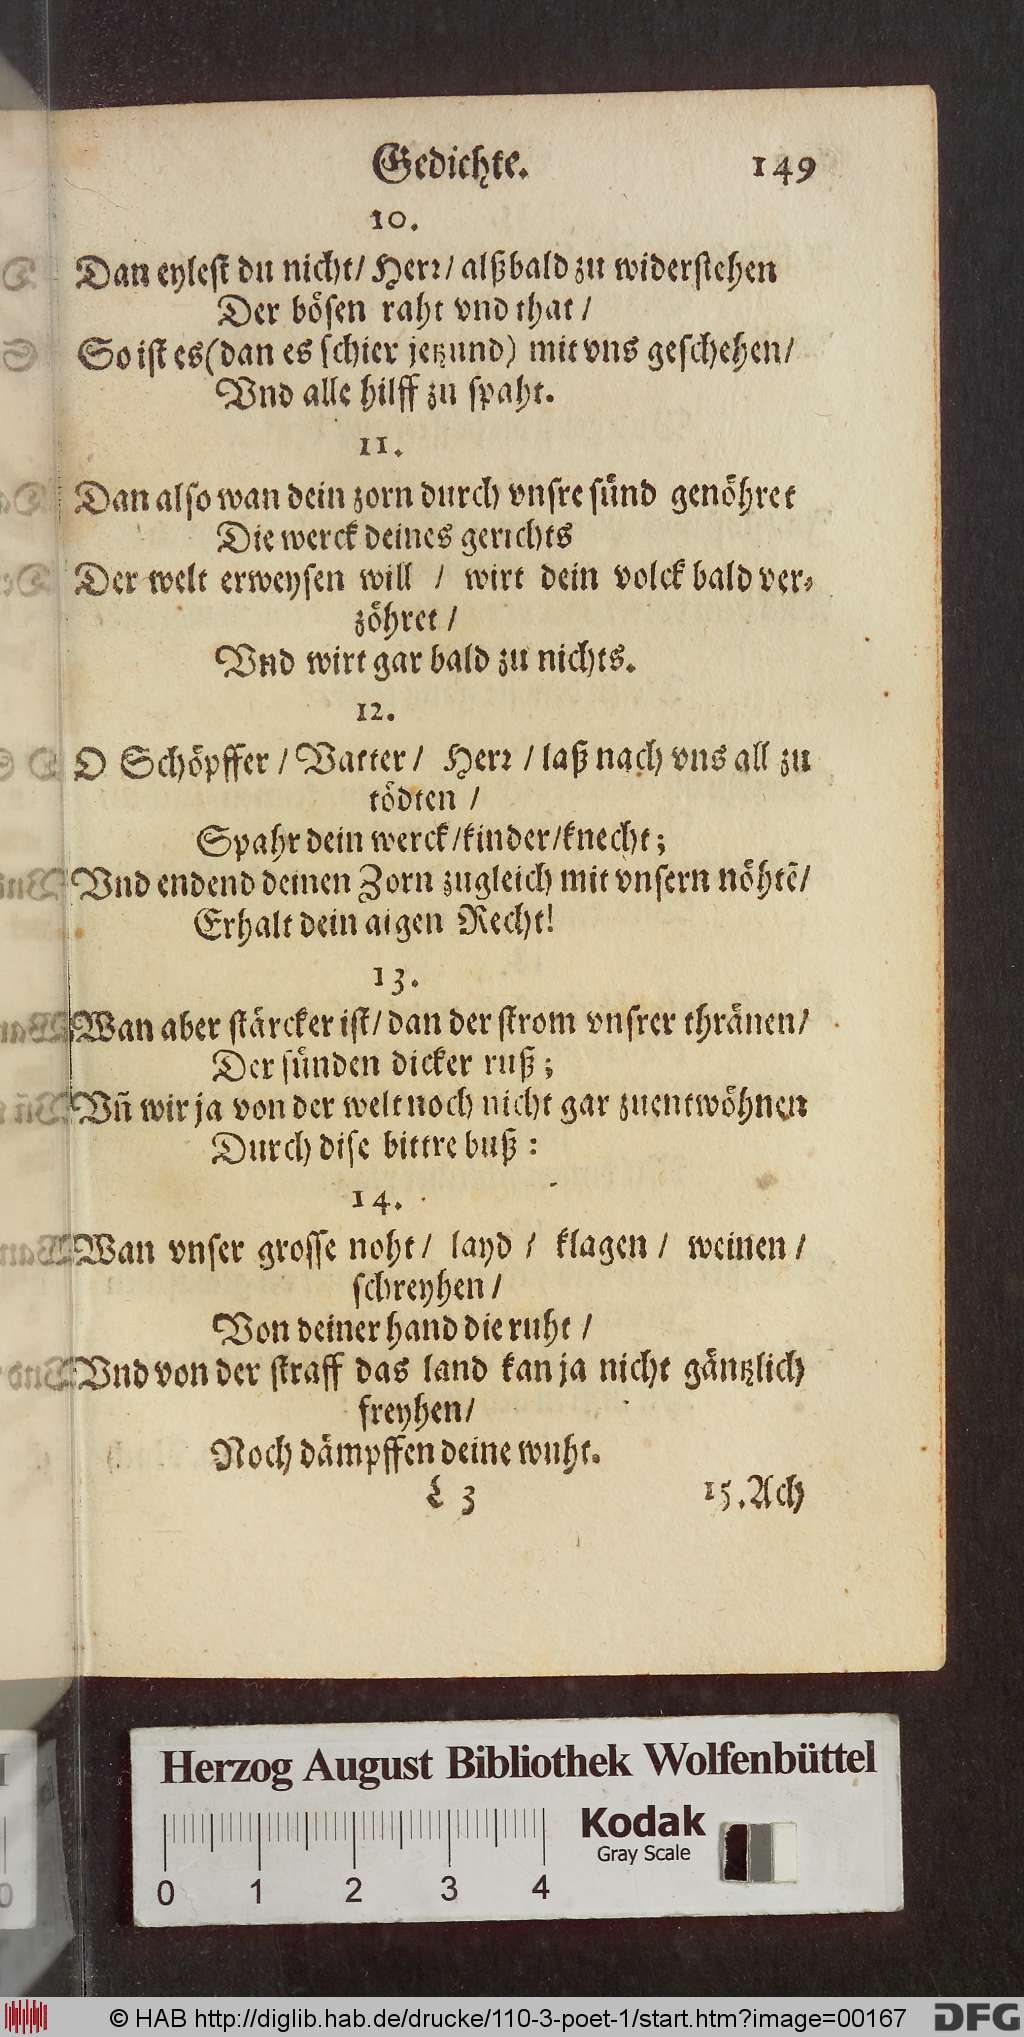 Gedichte. 149
10.
Dan eylest du nicht/ Herr/ alßbald zu widerstehen
Der bösen raht vnd that /
So ist es (dan es schier jetzund) mit vns geschehen/
Vnd alle hilff zu spaht.
11.
Dan also wan dein zorn durch vnsre sünd genöhret
Die werck deines gerichts
Der welt erweysen will / wirt dein volck bald ver-
zöhret /
Vnd wirt gar bald zu nichts.
12.
O Schöpffer / Vatter / Herr / laß nach vns all zu
tödten /
Spahr dein werck/kinder/knecht;
Vnd endend deinen Zorn zugleich mit vnsern nöhtē/
Erhalt dein aigen Recht!
13.
Wan aber stärcker ist/ dan der strom vnsrer thränen/
Der sünden dicker ruß;
Vñ wir ja von der welt noch nicht gar zuentwöhnen
Durch dise bittre buß:
14.
Wan vnser grosse noht/ layd / klagen / weinen /
schreyhen /
Von deiner hand die ruht /
Vnd von der straff das land kan ja nicht gäntzlich
freyhen/
Noch dämpffen deine wuht.
L 3 15. Ach
Herzog August Bibliothek Wolfenbüttel
Kodak
Gray Scale
0 1 2 3 4
© HAB http://diglib.hab.de/drucke/110-3-poet-1/start.htm?image=00167
DFG